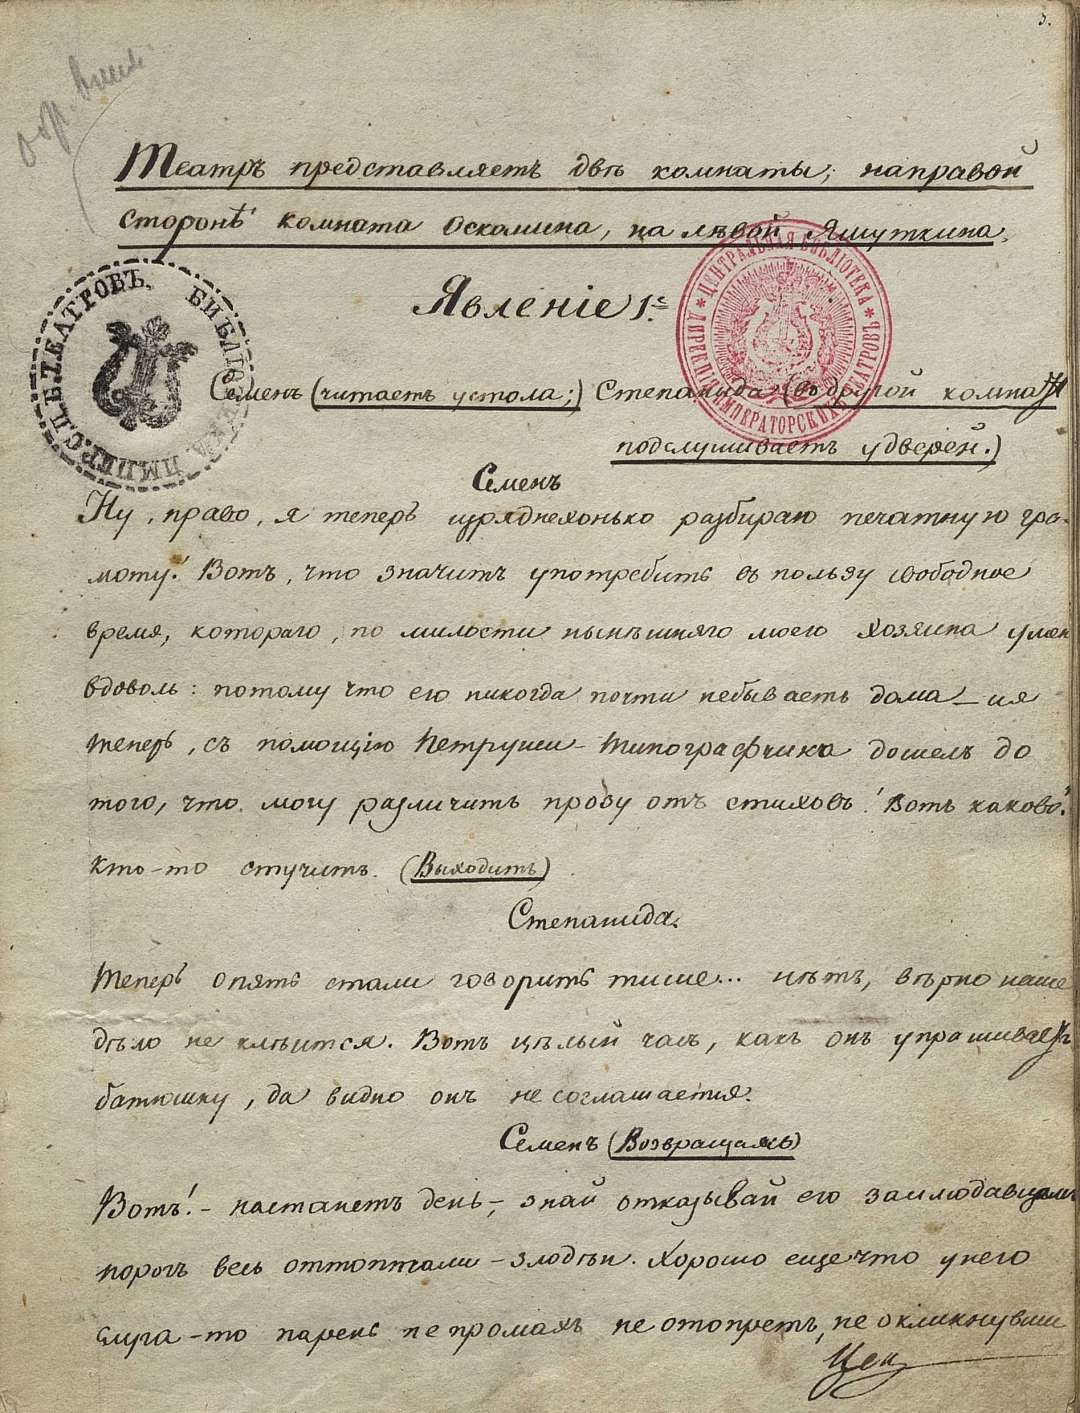 3.
Театръ представляетъ двѣ комнаты; направой
сторонѣ комната Оскомина, на лѣвой Яшуткина.
БИБЛІОТЕКА ИМПЕР. С.П.Б. ТЕАТРОВЪ.
ЦЕНТРАЛЬНАЯ БИБЛІОТЕКА * ДИРЕКЦІИ ИМПЕРАТОРСКИХЪ ТЕАТРОВЪ *
Явленіе 1.е
Семенъ (читаетъ устола;) Степанида (въ другой комнатѣ
подслушиваетъ удверей.)
Семенъ
Ну, право, я теперь изряднехонько разбираю печатную гра-
моту! Вотъ, что значитъ употребить въ пользу свободное
время, котораго, по милости нынѣшняго моего хозяина у меня
вдоволь: потому что его никогда почти небываетъ дома — ия
теперь, съ помощію Петруши - типографчика дошелъ до
того, что могу различить прозу отъ стиховъ! Вотъ каково!
кто-то стучитъ. (Выходитъ)
Степанида.
Теперь опять стали говорить тише... нѣтъ, вѣрно наше
дѣло не клѣится. Вотъ цѣлый часъ, какъ онъ упрашиваетъ
батюшку, да видно онъ не соглашается.
Семенъ (Возвращаясь)
Вотъ! - настанетъ день, - знай отказывай его заимодавцамъ
порогъ весь оттоптали - злодѣи. Хорошо ещечто унего
слуга - то парень не промахъ не отопретъ, не окликнувши